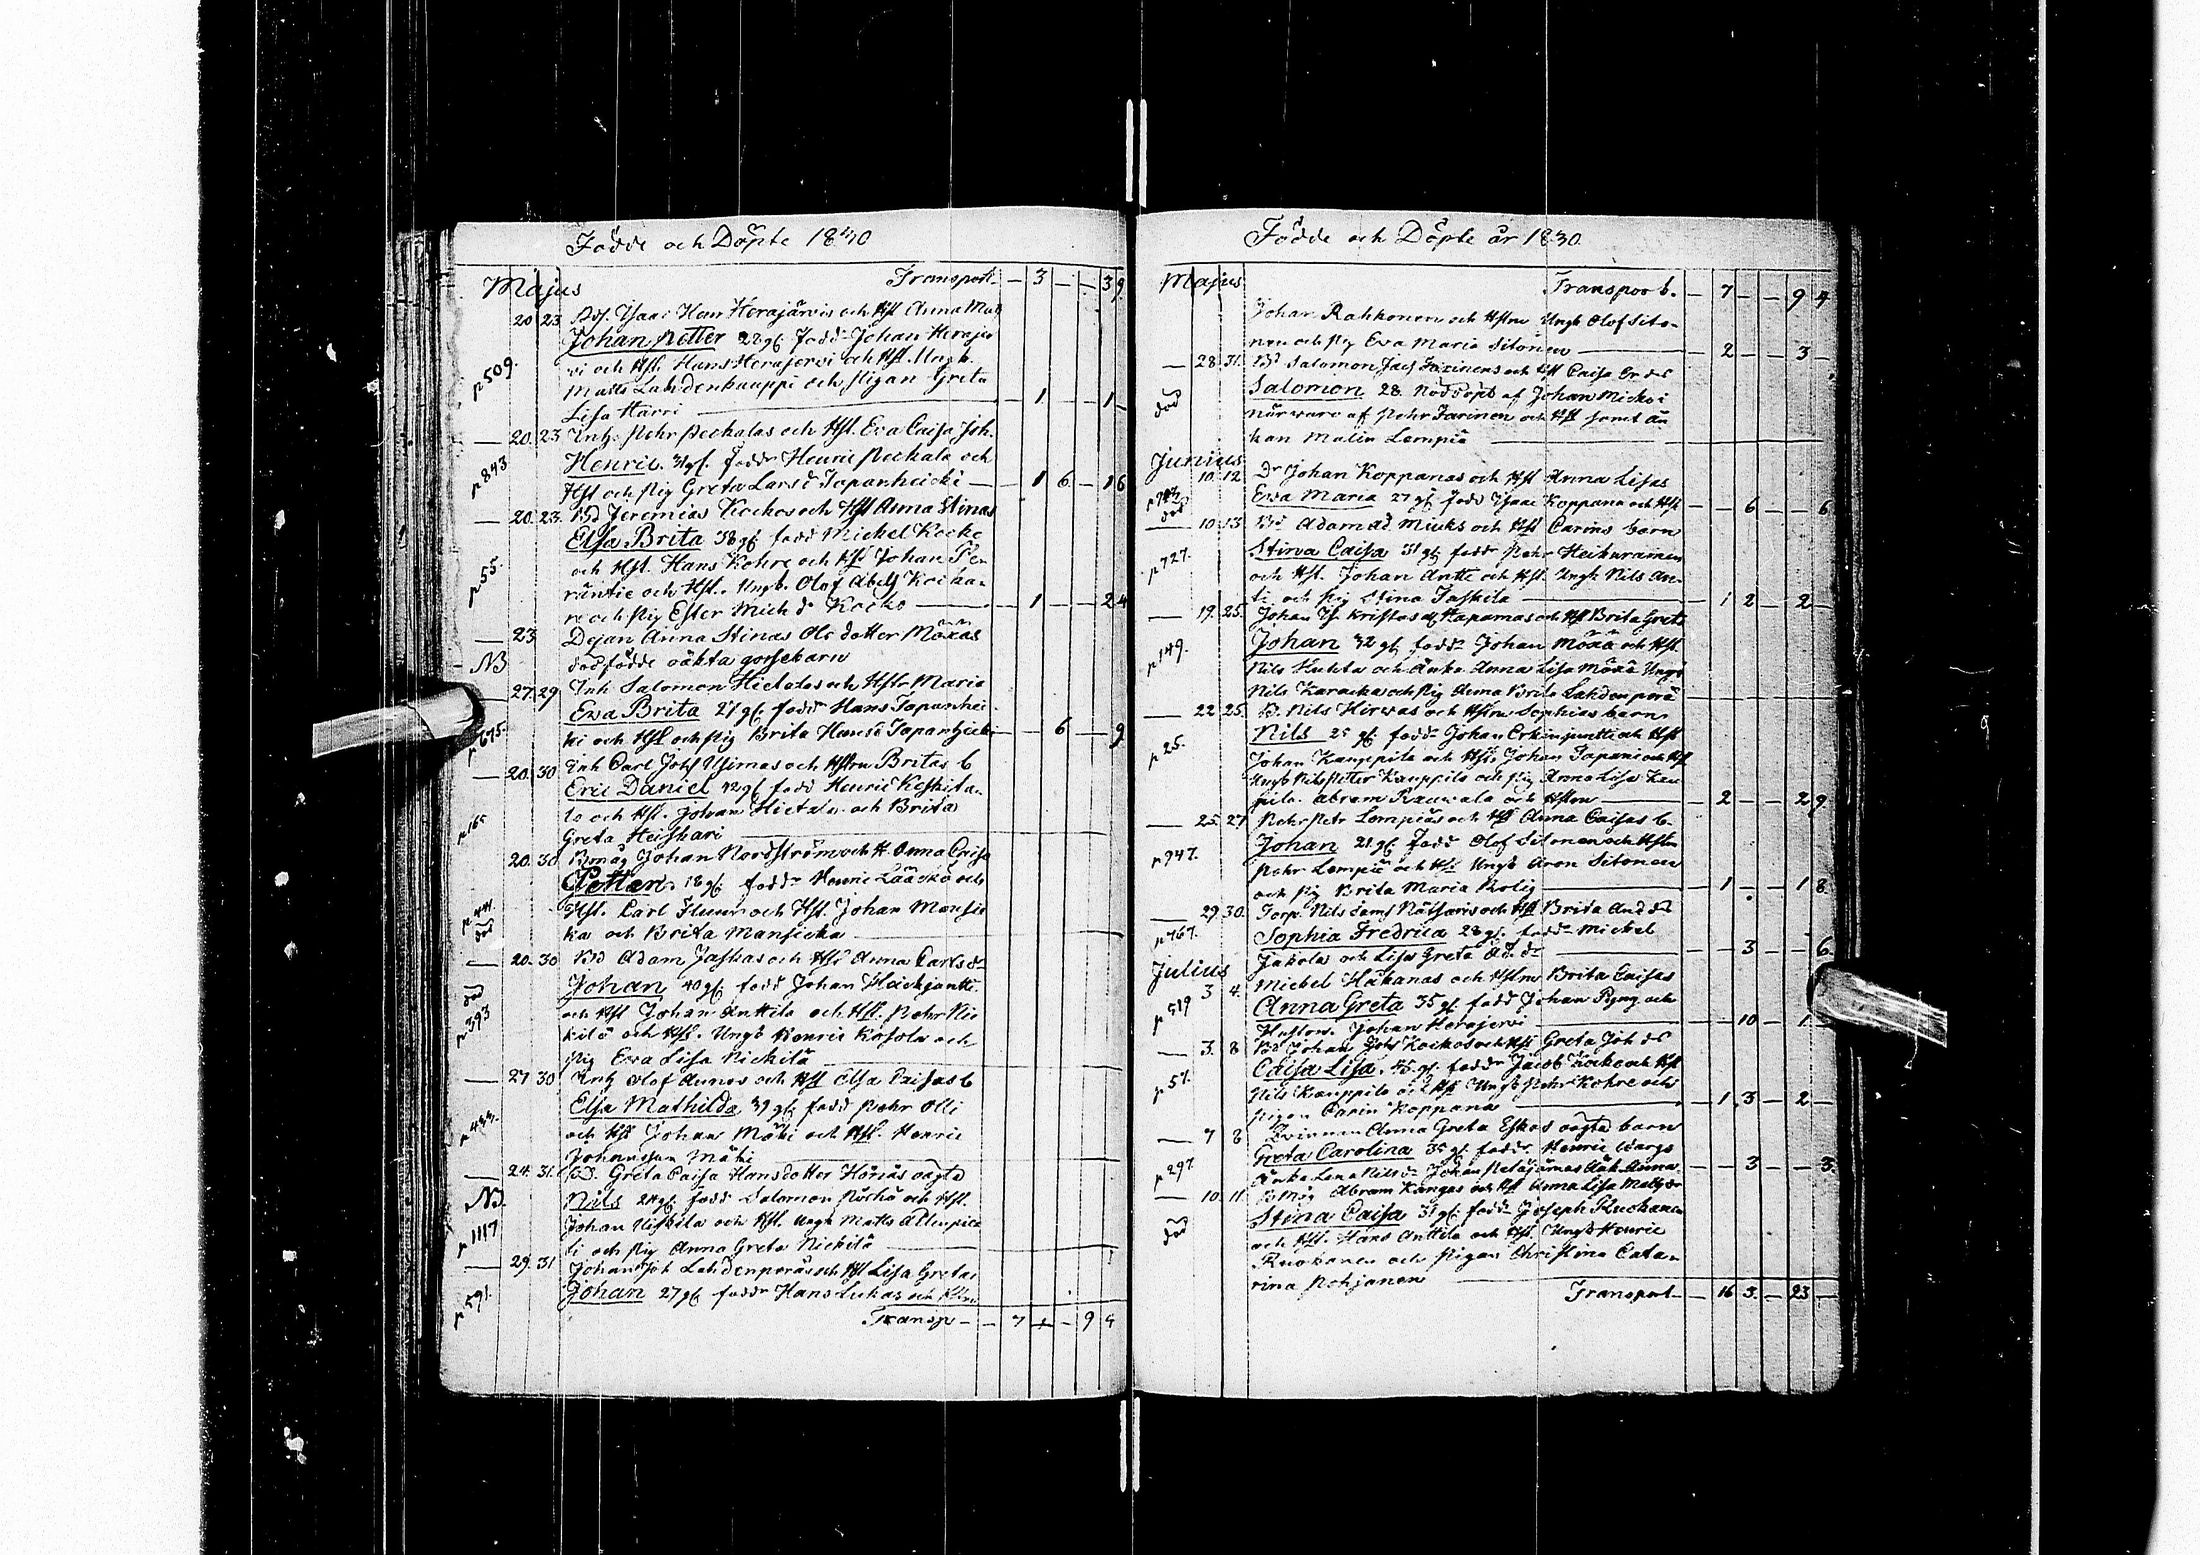 Födde och Döpte 1830
Majus Transport — 3 — — 39
20 23 Isaac Herajärvis och Hst Anna
Johan Petter 28 gl. fadd. Johan Heraje
p 509. vi och Hst. Hans Herajervi och Hst. Ungk.
Matts Lahdenkauppi och pigan Greta
Lisa Harri — 1 — — 1 —
— 20. 23 Inh. Pehr Peckalas och Hst. Eva Caisa Joh.
p 843 Henric. 31 gl. faddr Henric Peckala och
Hst och Pig Greta Lars d. Tapanheicki — 1 6 — 16
— 20. 23. Bd Jeremias Kockos och Hst Anna Stinas
Elsa Brita 38 gl. fadd Michel Kocko
p 55. och Hst. Hans Kohre och Hst Johan
räntie och Hst. Ungk. Olof Abels
re och Pig Ester Mich dr Kocko — 1 — — 24
— 23 Dejan Anna Stinas Ols dotter Möxäs
NB dödfödde oäkta gossebarn
— 27. 29 Inh Salomon Hietalas och Hstr Maria
Eva Brita 27 gl. fadd Hans Tapanhei
p 675. ki och Hst och Pig Brita Hans d Tapanheicki — 6 — 9
— 20. 30 Inh Carl Johs Usimas och Hstru Britas b
Eric Daniel 42 gl fadd Henric Keskita-
p 165 lo och Hst. Johan Hietala och Brita
Greta Heiskari
20. 30 Johan Nordström och H. Anna Caisa
Petter. 18 gl. faddr Henric Lääskö och
p 441. död Hst. Carl och Hst. Johan Mansic
ka och Brita Mansicka
— 20. 30 Bd Adam Jaskas och Hst Anna Carls d
död Johan 40 gl. fadd Johan
p 393 och Hst Johan Anttila och Hst. Pehr Nic
kilä och Hst. Ungk Henric Kasola och
Pig Eva Lisa Nickilä
— 27 30 Inh Olof Aunos och Hst Elsa Caisas b
Elsa Mathilda 39 gl. fadd Pehr Olli
p 433. och Hst Johan Mäki och Hst. Henric
Johansson Mäki
— 24. 31. Greta Caisa Hansdotter Hönäs oägta
NB. Nils 24 gl. fadd. Salomon och Hst.
p 1117 Johan Niskila och Hst. Ungk Matts
ti och Pig Anna Greta Nickilä
— 29. 31 Johan Joh Lahdenperäs och Hst Lisa Gretas
p 591. Johan 27 gl. faddr Hans Lukas och Hstru
Transp — — 7 — — 9 4
Födde och Döpte år 1830
Majus Transport. — 7 — — 9 4
Johan Rahkonen och Hstru Ungk Olof Sito-
nen och Pig Eva Maria Sitonen — 2 — — 3 —
— 28 31. Bd Salomon och Hst Caisa
död Salomon 28. Nöddöpt af Johan
närvaro af Pehr Farinen och Hst samt än
kan Malin Lempiä
Junius
10. 12 Dr Johan Koppanas och Hst Anna Lisas
död Eva Maria 27 gl. fadd Isaac Koppana och Hst — 6 — — 6
— 10. 13. Bd Adam Ad. och Hst Carins barn
p 727. Stina Caisa 31 gl. faddr Pehr
och Hst. Johan Antti och Hst. Ungk Nils An-
ti och Pig Stina Jaskila — 1 2 — 2 —
— 19. 25. Johan och Hst Brita Greta
p 149. Johan 32 gl. fadd Johan Möxä och Hst.
Nils Hukta och Änka Anna Lisa Möxä Ungk
Nils Karacka och Pig Anna Brita Lahdenperä
— 22 25. B. Nils Hirvas och Hstru Sophias barn
p 25. Nils 25 gl. fadd Johan Erkinjuntti och Hst
Johan Kauppila och Hst. Johan Tapani och Hst
Ungk Nils Petter Kauppila och Pig Anna Lisa Kau
pila. Abram och Hstru — 2 — — 2 9
— 25. 27 Pehr Pehr Lempiäs och Hst Anna Caisas b.
p 947. Johan 21 gl. fadd Olof Sitonen och Hstru
Pehr Lempiä och Hst Ungk Aron Sitonen
och Pig Brita Maria Rolig — 1 — — 1 8
— 29. 30. Torp. Nils och Hst Brita And ds
p 767. Sophia Fredrica 28 gl. fadd Michel
Jakola och Lisa Greta — 3 — — 6
Julius Michel Hakanas och Hstru Brita Caisas
3 4. Anna Greta 35 gl. fadd Johan och
p 519 Hustru. Johan Herajervi — 10 — 1
— 3. 8 Bd Johan Kockos och Hst Greta Joh ds
p 57. Caisa Lisa. 45 gl. faddr Jacob Kocko och Hst
Nils Kauppila och Hst Ungk Pehr Kohre och
pigan Carin Koppana — 1 3 — 2 —
— 7 8 Qvinnan Anna Greta Eskos oägta barn
p 297. Greta Carolina 35 gl. faddr Henric Wargo
Änka Lena Nils dr Johan Anna — 3 — — 3.
— 10. 11. Abram Kangas och Hst Anna Lisa
död Stina Caisa 31 gl. fadd Joseph Ruokanen
och Hst. Hans Anttila och Hst. Ungk Henric
Ruokanen och Pigan Christina Cata-
rina Pohjanen
Transport — 16 3 — 23 —